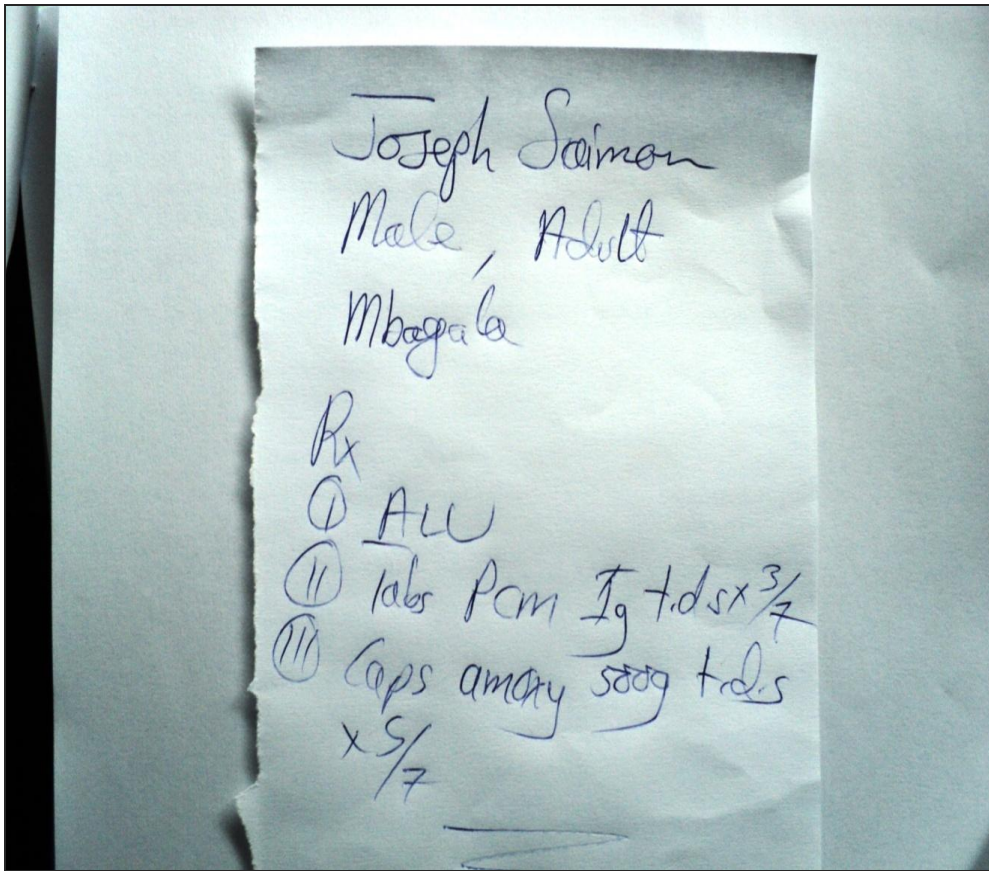 Joseph Saimon
Male, Adult
Mbagala
Rx
I ALU
II Tabs Pcm Ig t.d.s x 3/7
III Caps amoxy 500g t.d.s
x 5/7